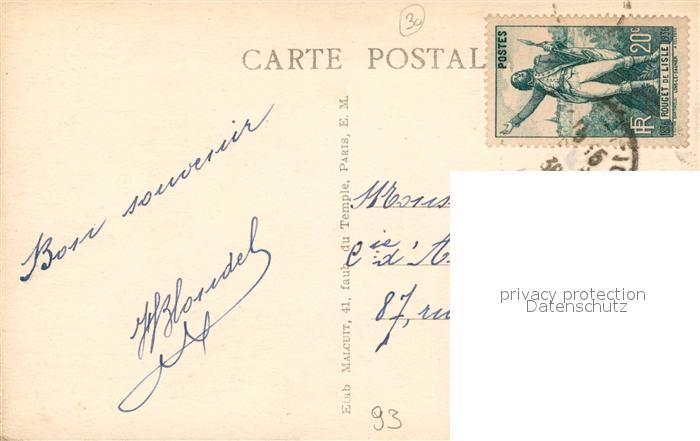 30
CARTE POSTAL
POSTES
20c
1836 ROUGET DE LISLE 1936
RF
Bon souvenir
HBlondel
Etab MALCUIT, 41, faub. du Temple, PARIS, E. M.
Mons
Cie d'A
87, ru
93
privacy protection
Datenschutz